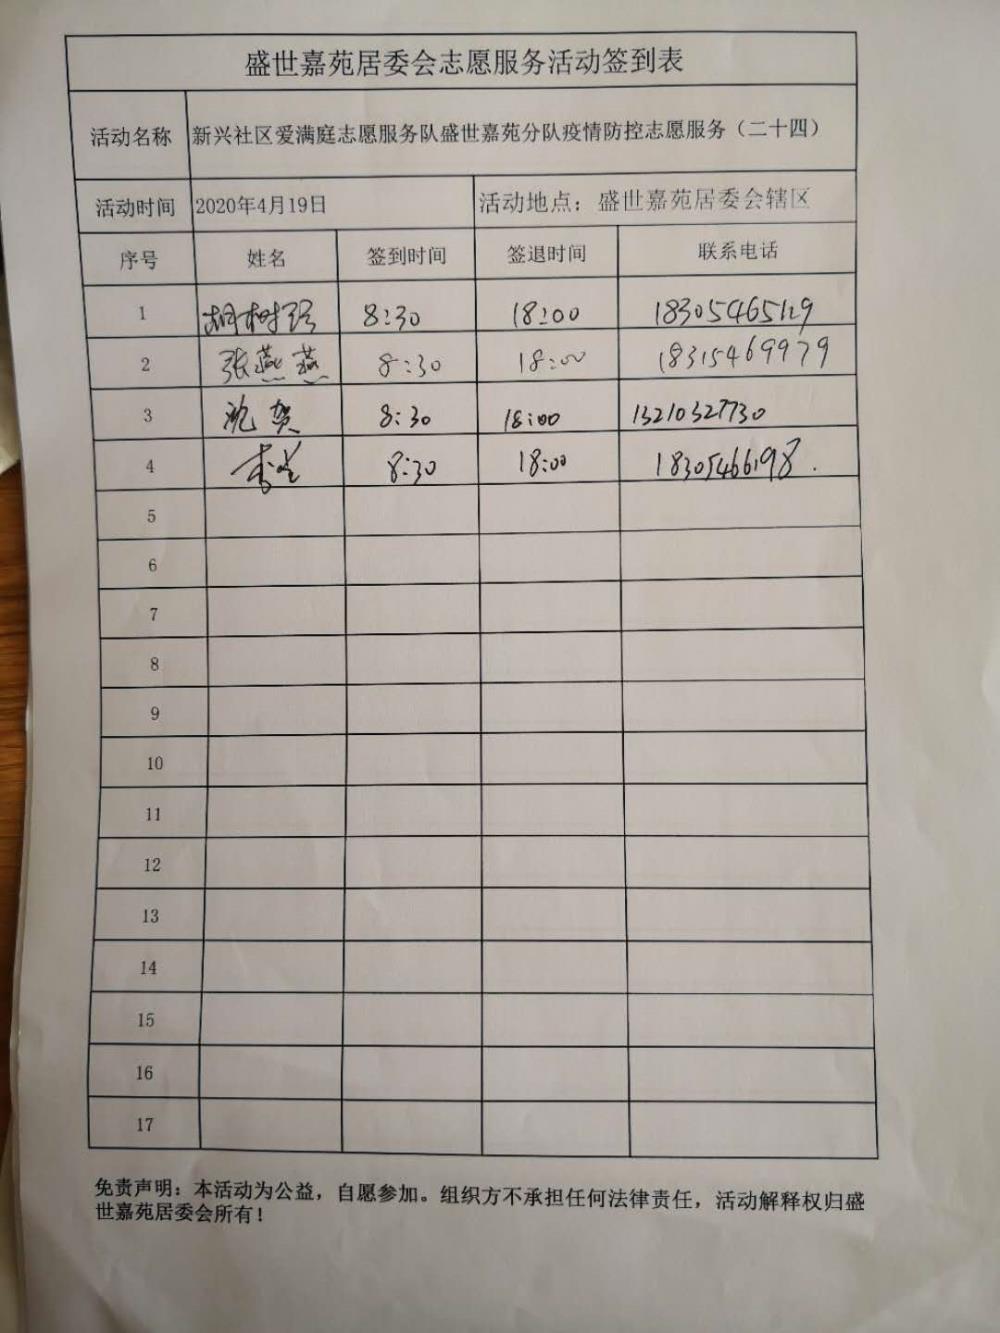 盛世嘉苑居委会志愿服务活动签到表
活动名称 新兴社区爱满庭志愿服务队盛世嘉苑分队疫情防控志愿服务（二十四）
活动时间 2020年4月19日 活动地点：盛世嘉苑居委会辖区
序号 姓名 签到时间 签退时间 联系电话
1 胡树 8:30 18:00
2 张燕燕 8:30 18:00 18315469979
3 贺 8:30 18:00 13210327730
4 李 8:30 18:00 18305466198.
5
6
7
8
9
10
11
12
13
14
15
16
17
免责声明：本活动为公益，自愿参加。组织方不承担任何法律责任，活动解释权归盛
世嘉苑居委会所有！